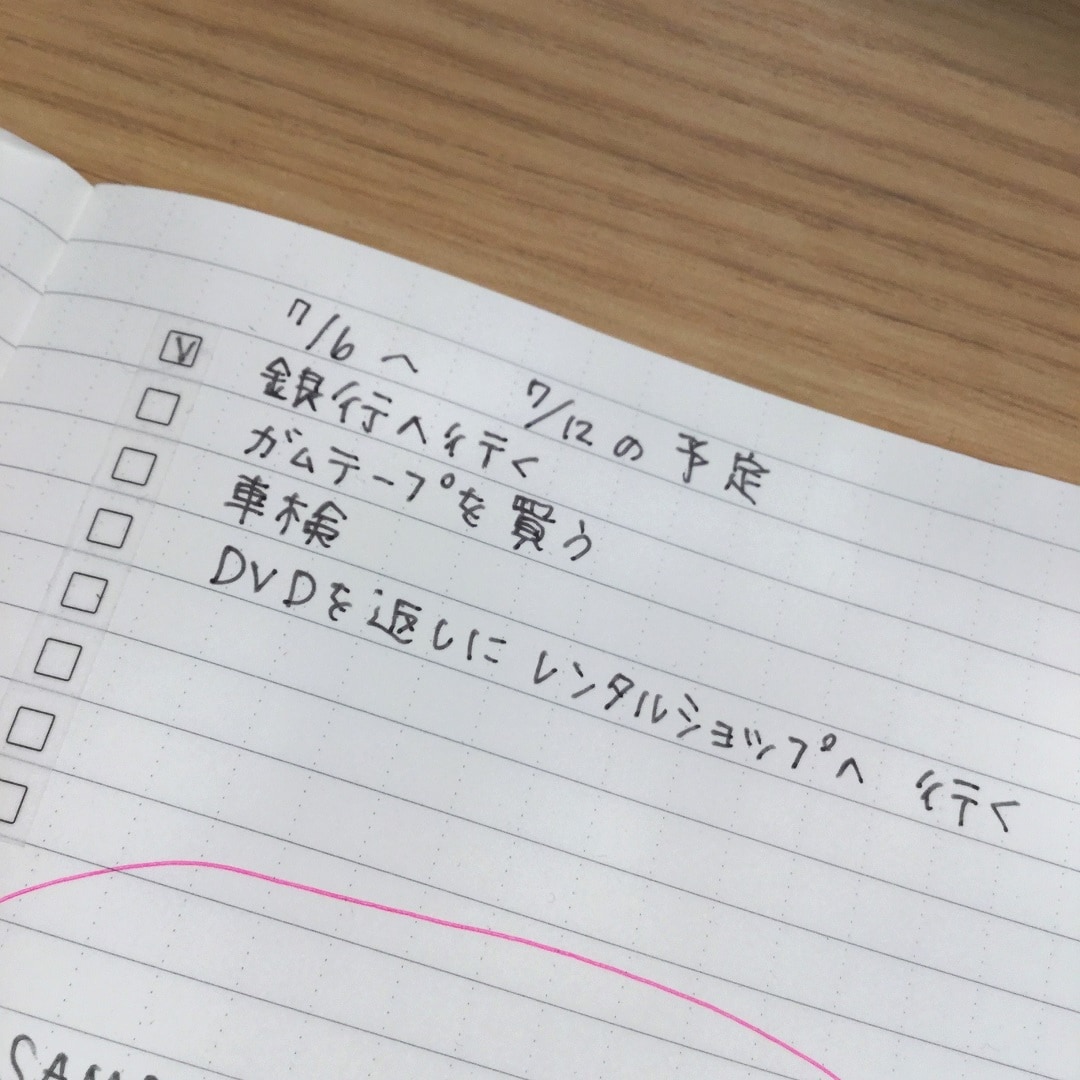 7/6へ 7/12の予定
銀行へ行く
ガムテープを買う
車検
DVDを返しにレンタルショップへ行く